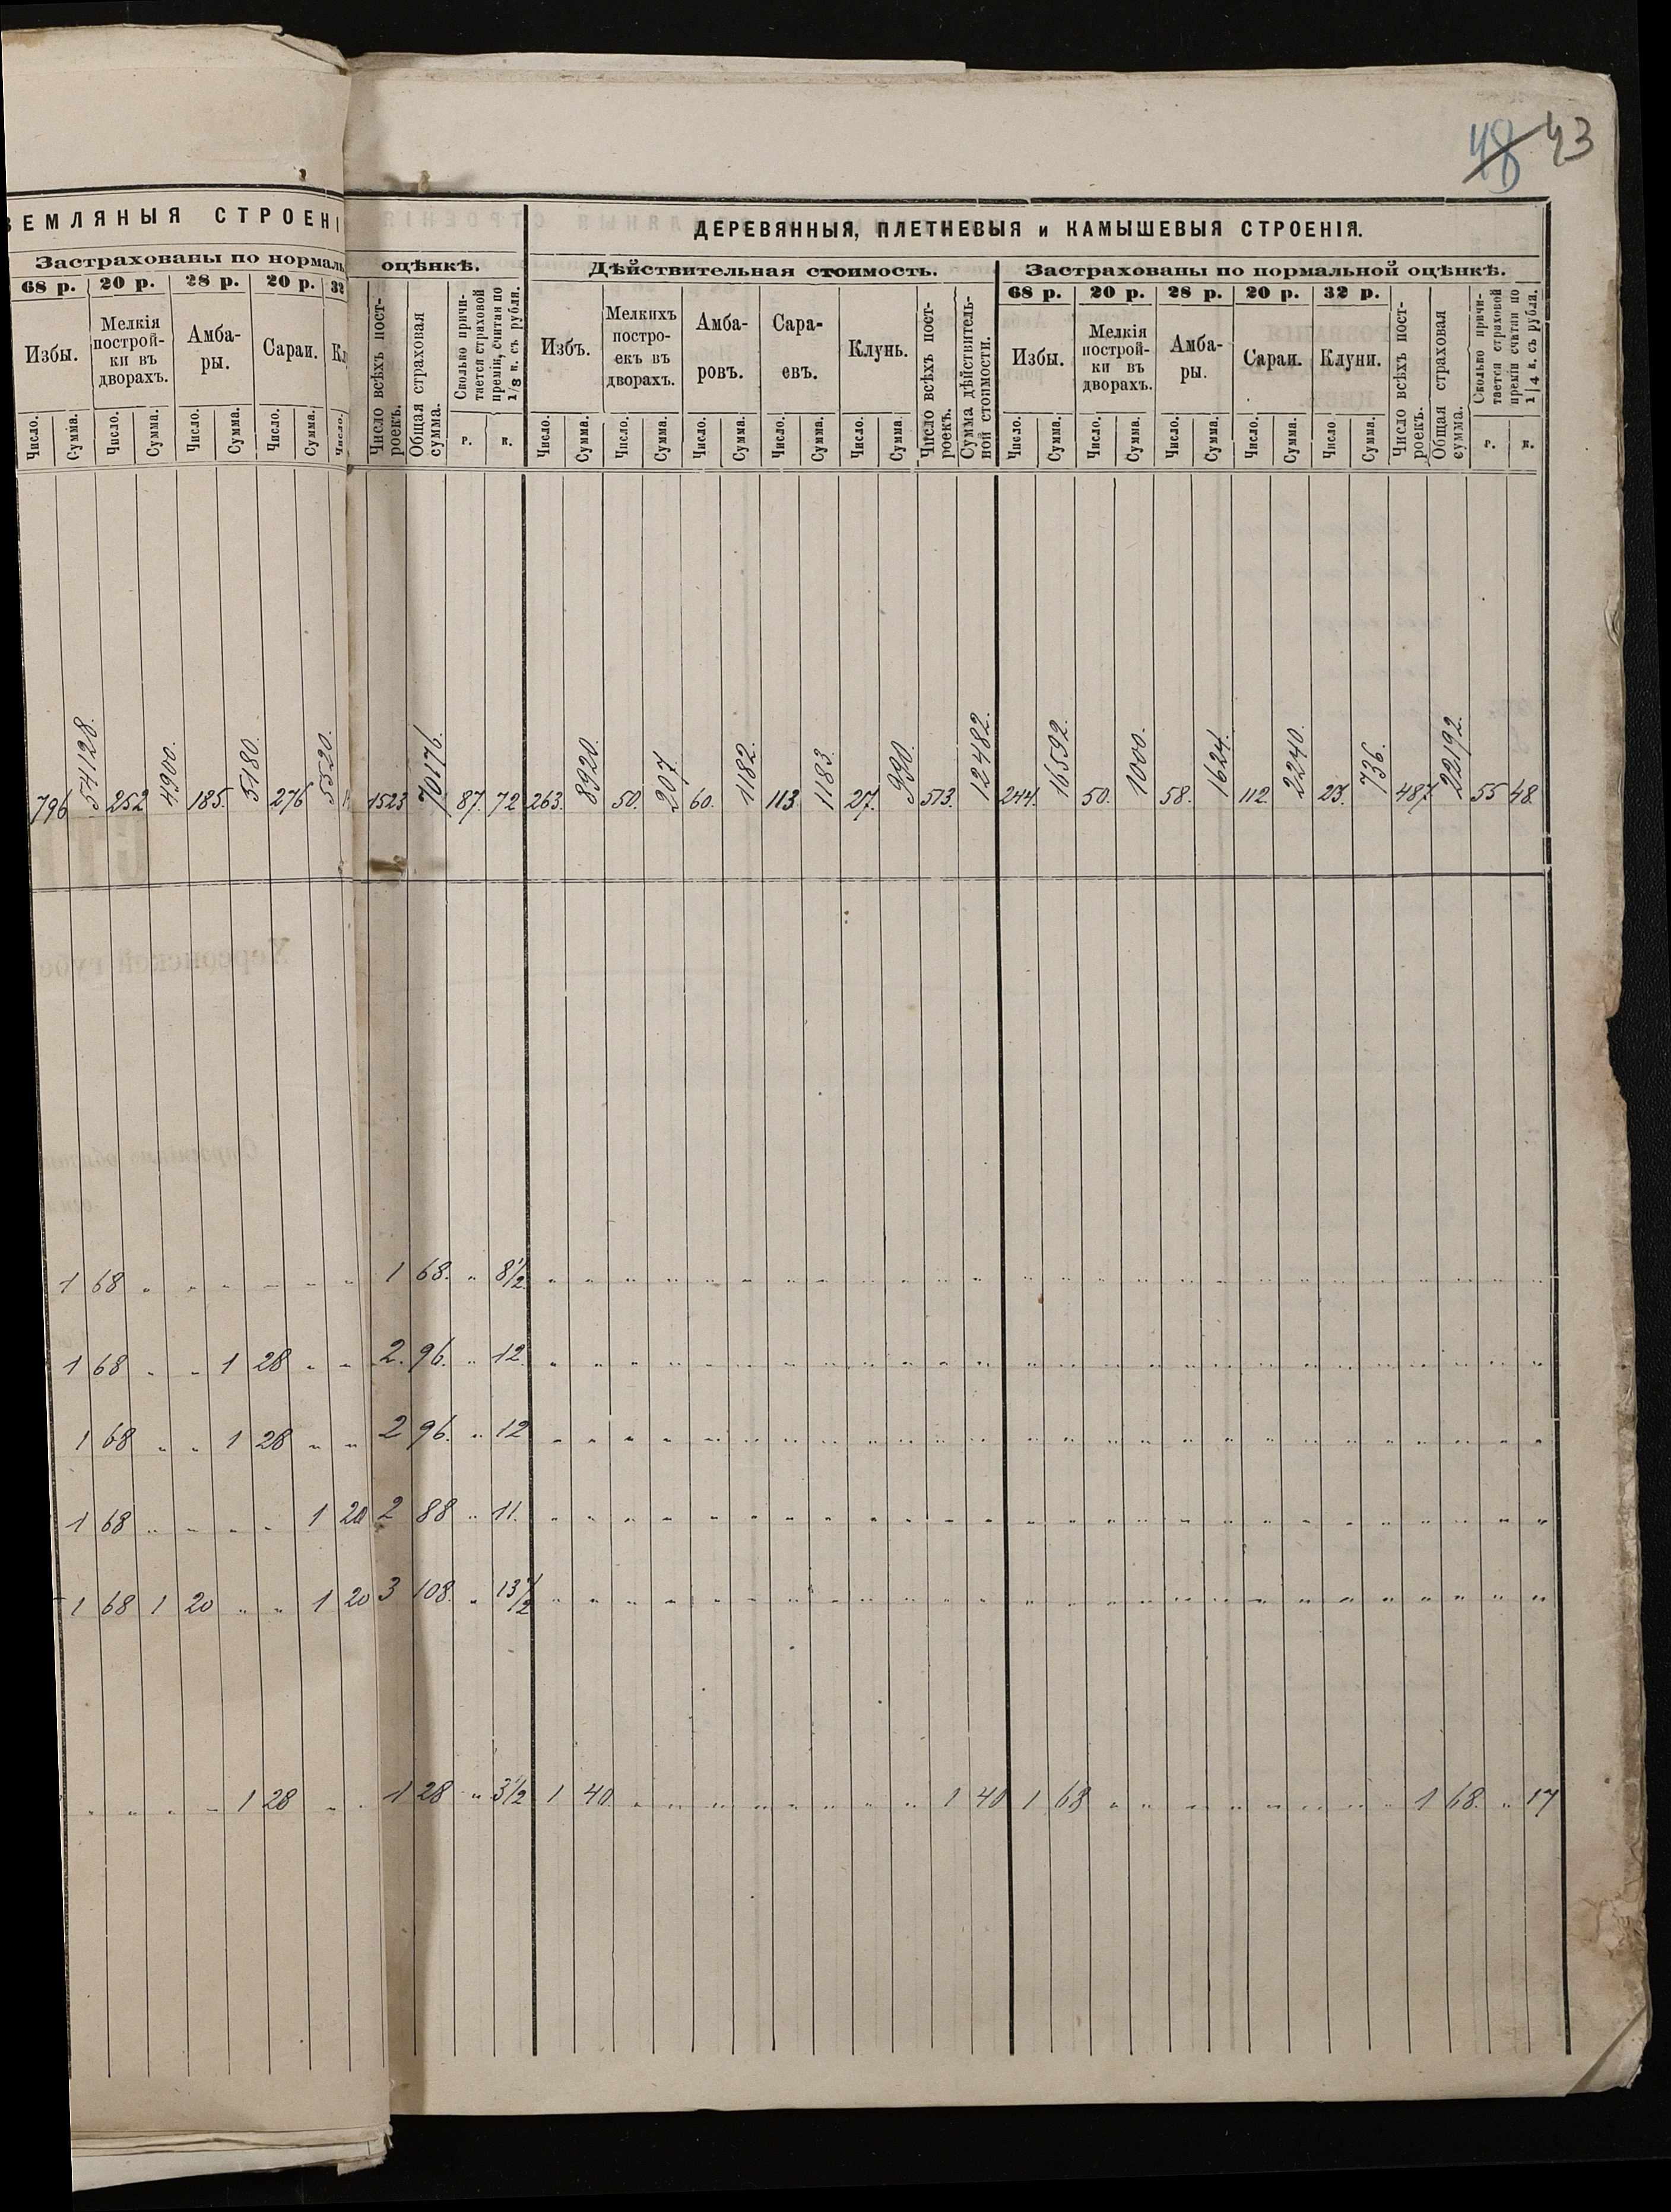 48 43
ЗЕМЛЯНЫЯ СТРОЕНІ
ДЕРЕВЯННЫЯ, ПЛЕТНЕВЫЯ и КАМЫШЕВЫЯ СТРОЕНІЯ.
Застрахованы по нормаль
оцѣнкѣ.
Дѣйствительная стоимость.
Застрахованы по нормальной оцѣнкѣ.
68 р. 20 р. 28 р. 20 р. 32
68 р. 20 р. 28 р. 20 р. 32 р.
Избы.
Мелкія
построй-
ки въ
дворахъ.
Амба-
ры.
Сараи.
Кл
Число всѣхъ пост-
роекъ.
Общая страховая
сумма.
Сколько причи-
тается страховой
преміи, считан по
1/8 к. съ рубля.
Избъ.
Мелкихъ
постро-
екъ въ
дворахъ.
Амба-
ровъ.
Сара-
евъ.
Клунь.
Число всѣхъ пост-
роекъ.
Сумма дѣйствитель-
ной стоимости.
Избы.
Мелкія
построй-
ки въ
дворахъ.
Амба-
ры.
Сараи.
Клуни.
Число всѣхъ пост-
роекъ.
Общая страховая
сумма.
Сколько причи-
тается страховой
преміи считан по
1/4 к. съ рубля.
Число. Сумма. Число. Сумма. Число. Сумма. Число. Сумма. Число.
г. к.
Число. Сумма. Число. Сумма. Число. Сумма. Число. Сумма. Число. Сумма
Число. Сумма. Число. Сумма. Число. Сумма. Число. Сумма. Число Сумма.
г. к.
796 54128. 252 4900. 185. 5180. 276 5520. 1523 70176. 87. 72 263. 8920. 50. 207. 60. 1182. 113 1183. 27. 990. 513. 12482. 244. 16592. 50. 1000. 58. 1624. 112 2240. 23. 736. 487. 22192. 55 48.
1 68 " " " " " " 1 68. " 8 1/2 " " " " " " " " " " " " " " " " " " " " " " " " " "
1 68 " " 1 28 " " 2. 96. " 12 " " " " " " " " " " " " " " " " " " " " " " " " " "
1 68 " " 1 28 " " 2 96. " 12 " " " " " " " " " " " " " " " " " " " " " " " " " "
1 68 " " " " 1 20 2 88 " 11. " " " " " " " " " " " " " " " " " " " " " " " " " "
1 68 1 20 " " 1 20 3 108. " 13 1/2 " " " " " " " " " " " " " " " " " " " " " " " " " "
" " " " 1 28 " " 1 28 " 3 1/2 1 40 " " " " " " " " 1 40 1 68 " " " " " " " " 1 68. " 17